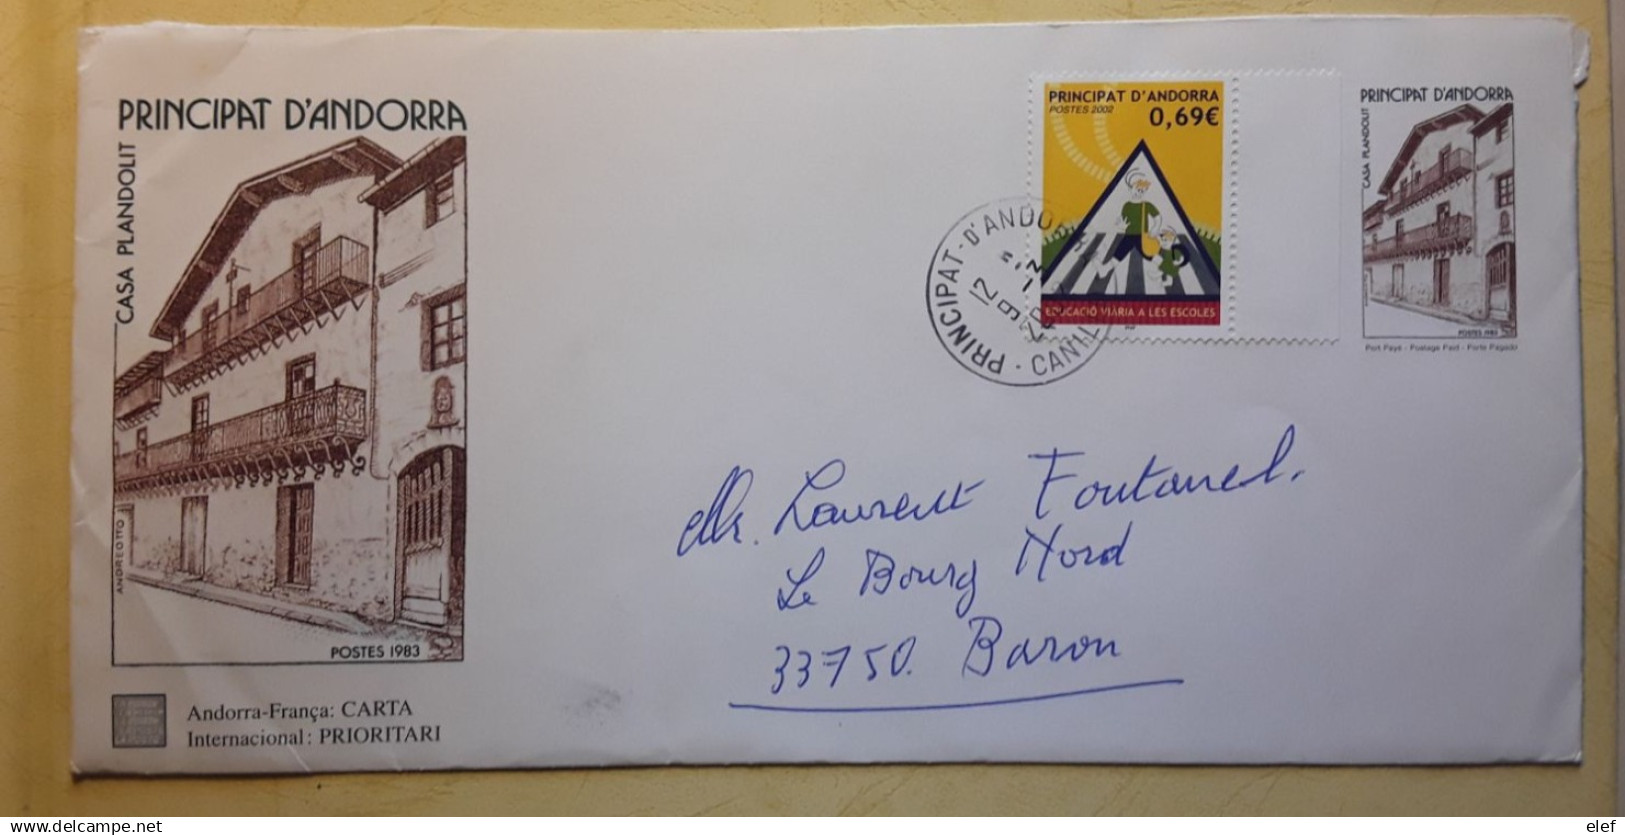 PRINCIPAT D'ANDORRA
CASA PLANDOLIT
ANDREOTTO
POSTES 1983
Andorra-França: CARTA
Internacional: PRIORITARI
PRINCIPAT D'ANDORRA
POSTES 2002
0,69€
EDUCACIÓ VIÀRIA A LES ESCOLES
PRINCIPAT-D'ANDORRA
12
PRINCIPAT D'ANDORRA
CASA PLANDOLIT
POSTES 1983
Port Payé - Postage Paid - Porte Pagado
Mr. Laurent Fontanel.
Le Bourg Nord
33750. Baron
elef